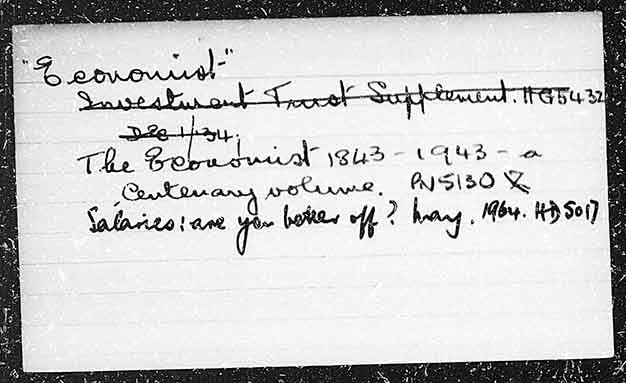 "Economist"
Investment Trust Supplement. HG5432
Dec 1/34.
The Economist 1843-1943 - a
Centenary volume. PN5130
Salaries: are you better off? May, 1964. HD5017